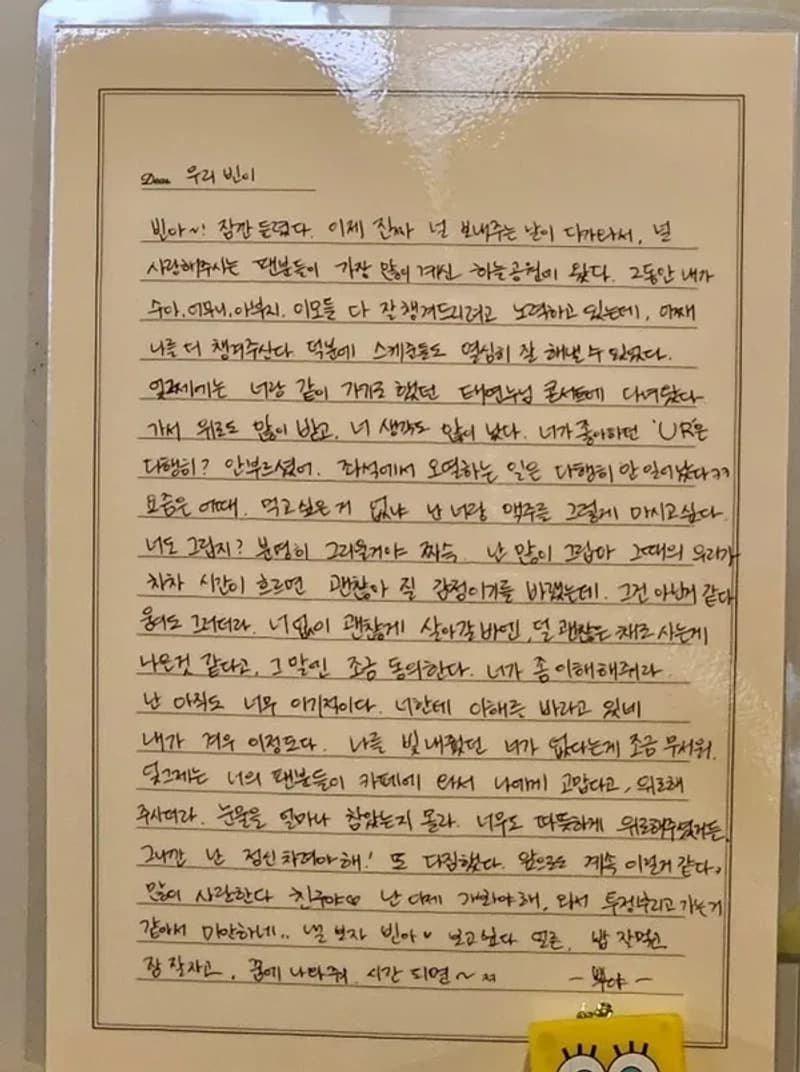 Dear 우리 빈이
빈아~! 잠깐 들렸다. 이제 진짜 널 보내주는 날이 다가와서, 널
사랑해주시는 팬분들이 가장 많이 계신 하늘공원에 왔다. 그동안 내가
수아, 어머니, 아부지, 이모들 다 잘 챙겨드리려고 노력하고 있는데, 어째
나를 더 챙겨주신다 덕분에 스케줄들도 열심히 잘 해낼 수 있었다.
엊그제에는 너랑 같이 가기로 했던 태연누님 콘서트에 다녀왔다
가서 위로도 많이 받고, 너 생각도 많이 났다. 너가 좋아하던 'UR'은
다행히? 안부르셨어. 좌석에서 오열하는 일은 다행히 안 일어났다ㅋㅋ
요즘은 어때. 먹고싶은거 없냐 난 너랑 맥주를 그렇게 마시고싶다.
너도 그립지? 분명히 그리울거야 짜슥. 난 많이 그립다 그때의 우리가
차차 시간이 흐르면 괜찮아 질 감정이기를 바랬는데. 그건 아닌거 같다
웅이도 그러더라. 너 없이 괜찮게 살아갈 바엔, 덜 괜찮은 채로 사는게
나은것 같다고, 그 말엔 조금 동의한다. 너가 좀 이해해줘라
난 아직도 너무 이기적이다. 너한테 이해를 바라고 있네
내가 겨우 이정도다. 나를 빛내줬던 너가 없다는게 조금 무서워.
엊그제는 너의 팬분들이 카페에 와서 나에게 고맙다고, 위로해
주시더라. 눈물을 얼마나 참았는지 몰라. 너무도 따뜻하게 위로해주셨거든,
그니깐 난 정신차려야해! 또 다짐했다. 앞으로도 계속 이럴거 같다,
많이 사랑한다 친구야∞ 난 이제 가봐야해, 와서 투정부리고 가는거
같아서 미안하네.. 낼 보자 빈아♡ 보고싶다 얼른, 밥 잘먹고
잠 잘자고, 꿈에 나타줘. 시간 되면~